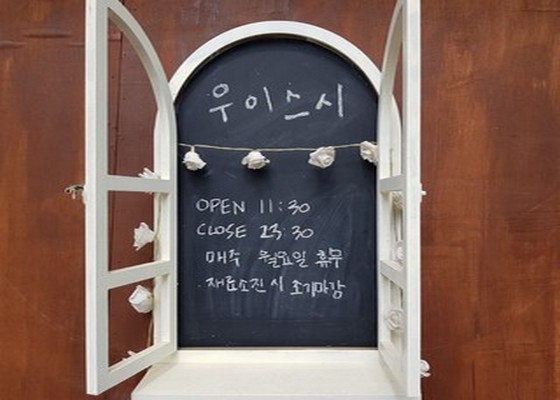 우이스시
OPEN 11:30
CLOSE 23:30
매주 월요일 휴무
· 재료소진 시 조기마감